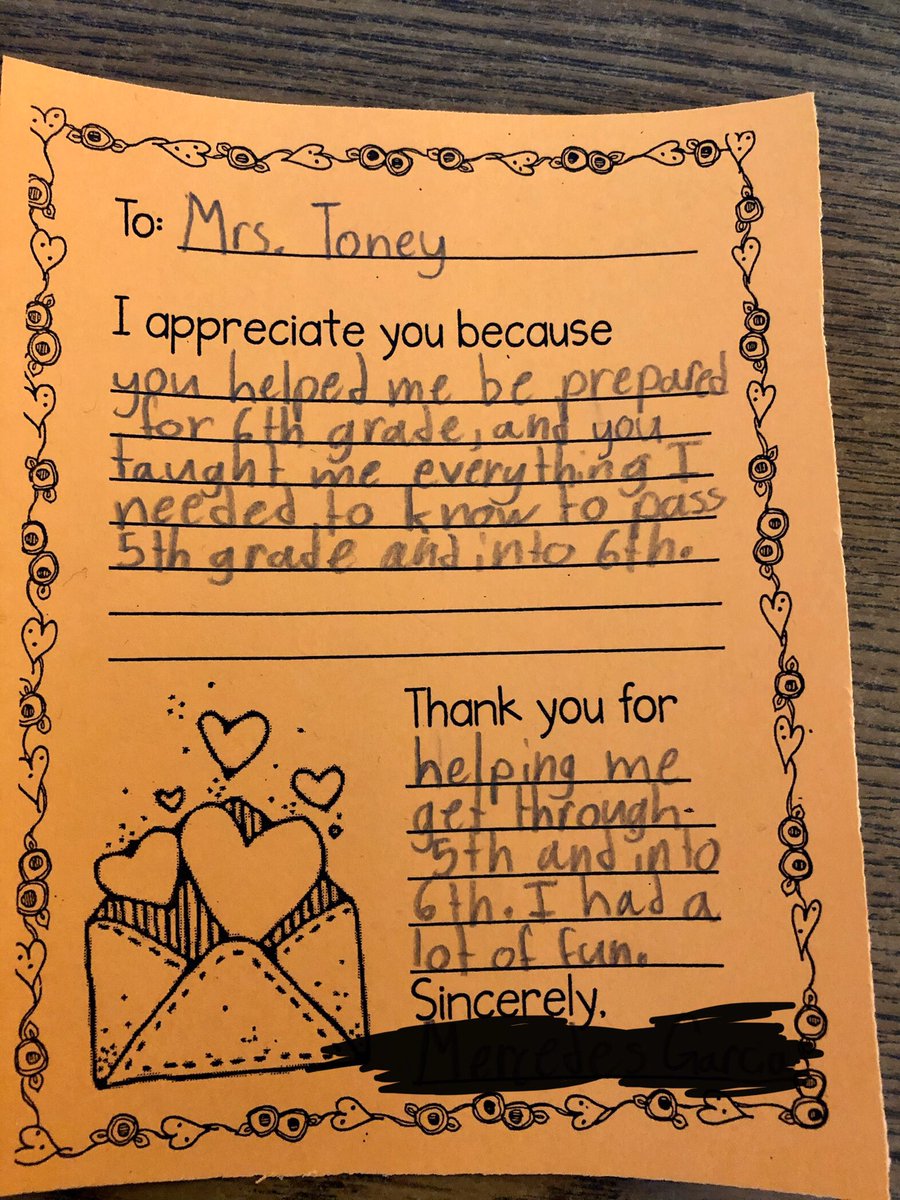 To: Mrs. Toney
I appreciate you because
you helped me be prepared
for 6th grade, and you
taught me everything I
needed to know to pass
5th grade and into 6th.
Thank you for
helping me
get through
5th and into
6th. I had a
lot of fun.
Sincerely,